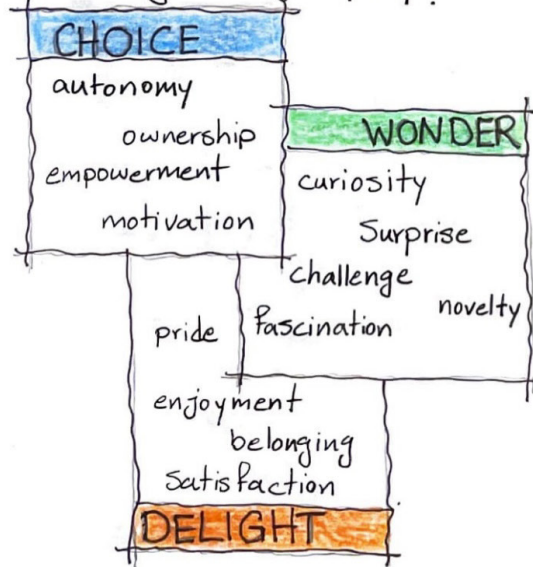 CHOICE
autonomy
ownership
empowerment
motivation
WONDER
curiosity
Surprise
challenge
novelty
fascination
pride
enjoyment
belonging
satisfaction
DELIGHT